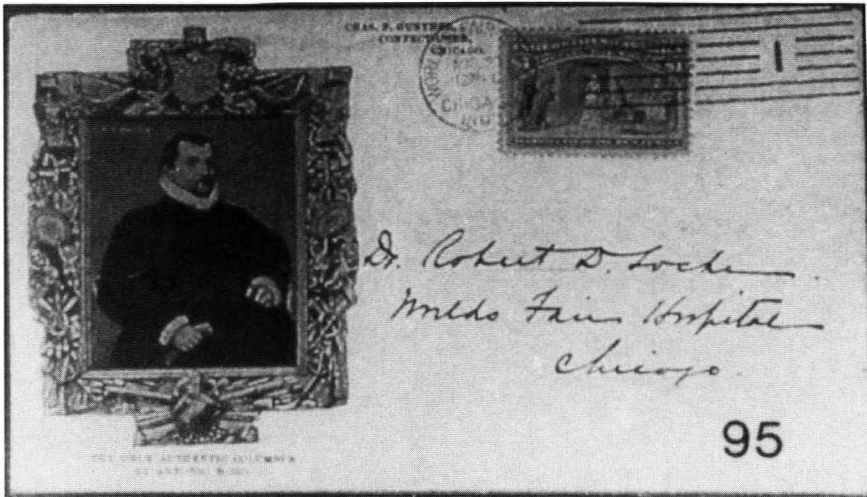 CHAS. F. GUNTHER,
CONFECTIONER,
CHICAGO.
CHICAGO
1
$1 $1
Dr. Robert D. Locke
Worlds Fair Hospital
Chicago.
THE ONLY AUTHENTIC COLUMBUS
BY ANTONIO MORO
95